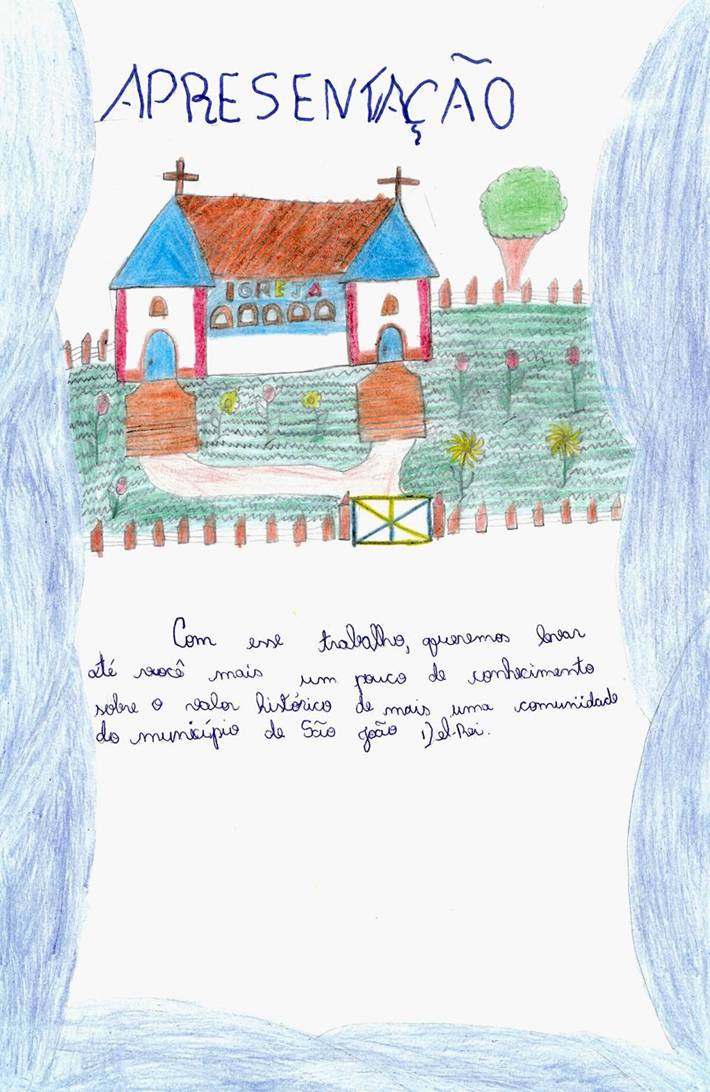 APRESENTAÇÃO
IGREJA
Com esse trabalho, queremos levar
até você mais um pouco de conhecimento
sobre o valor histórico de mais uma comunidade
do município de São João Del-Rei.